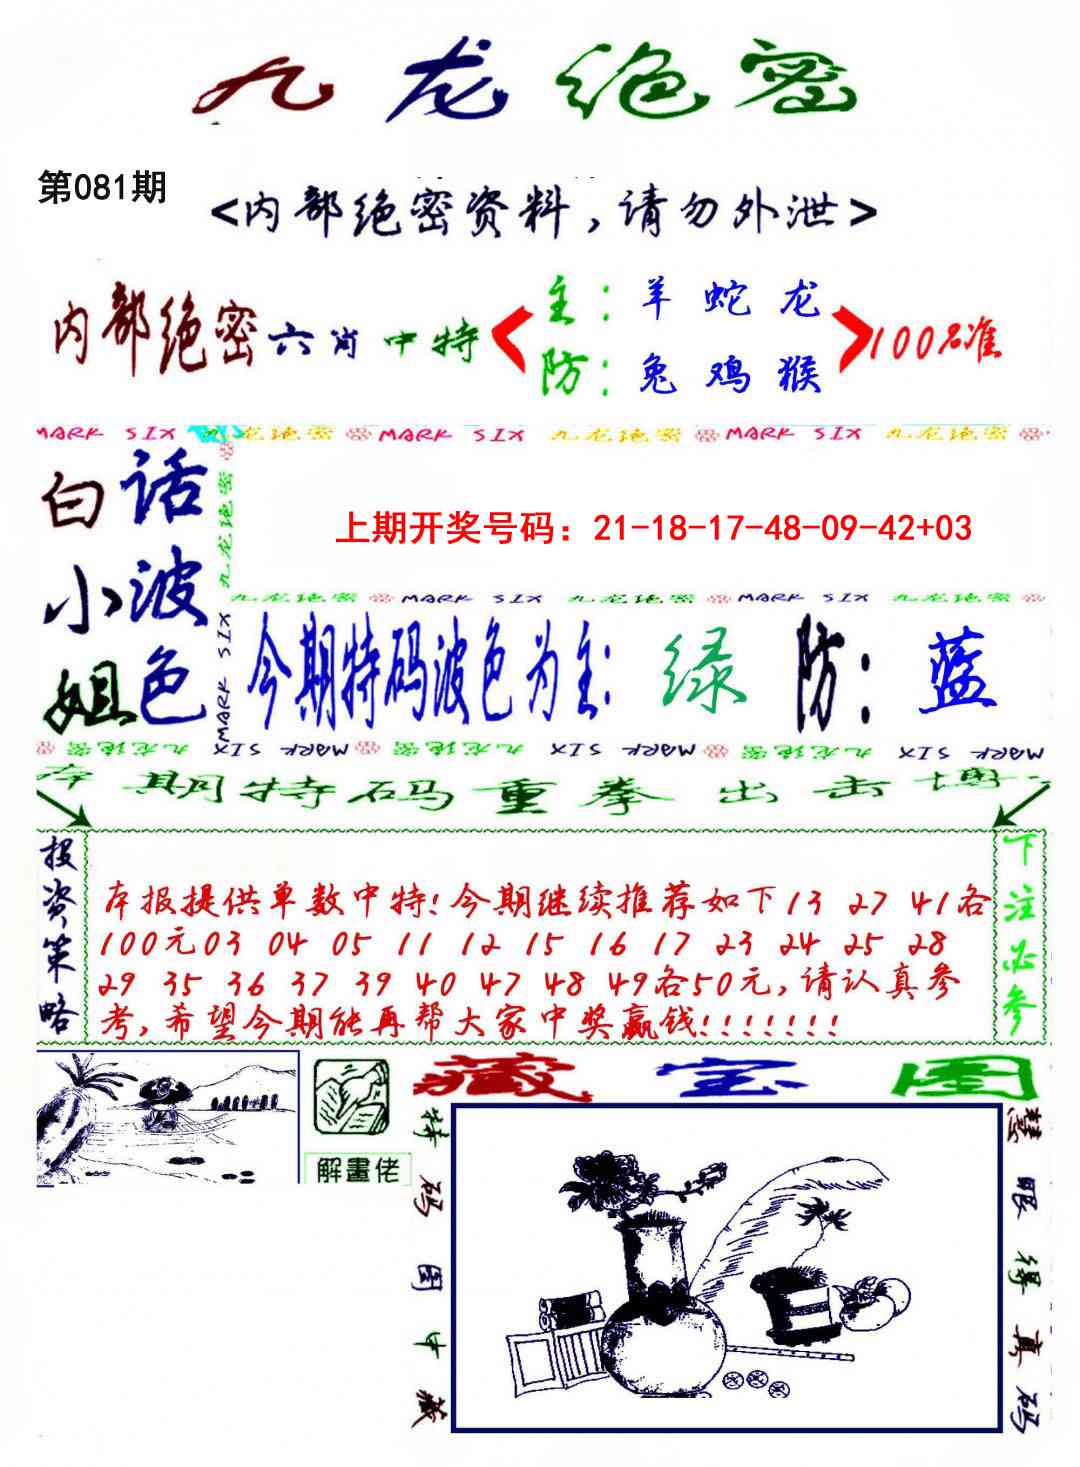 九龙绝密
第081期
<内部绝密资料,请勿外泄>
内部绝密六肖中特
主:羊 蛇 龙
防:兔 鸡 猴
100%准
MARK SIX 九龙绝密 MARK SIX 九龙绝密 MARK SIX 九龙绝密
白小姐
话波色
九龙绝密 MARK SIX
上期开奖号码:21-18-17-48-09-42+03
九龙绝密 MARK SIX 九龙绝密 MARK SIX 九龙绝密
今期特码波色为主:绿 防:蓝
九龙绝密 MARK SIX 九龙绝密 MARK SIX 九龙绝密 MARK SIX
本期特码重拳出击博
投资策略
本报提供单数中特!今期继续推荐如下13 27 41各
100元03 04 05 11 12 15 16 17 23 24 25 28
29 35 36 37 39 40 47 48 49各50元,请认真参
考,希望今期能再帮大家中奖赢钱!!!!!!!
下注必参
解畫佬
藏宝图
特码图中藏
慧眼得真码